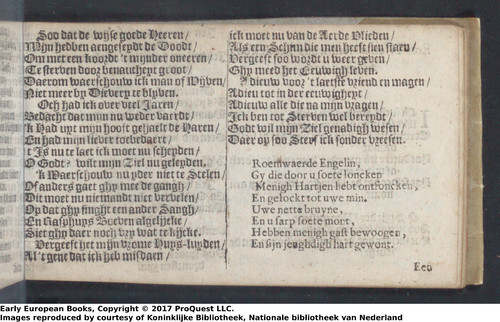 Soo dat de wyse goede Heeren/
Myn hebben aengeseydt de Doodt/
Om met een koordt 't mynder oneeren/
Te sterven door benautheyt groot/
Daerom waerschouw ick man of Wyven/
Niet meer by Dievery te blyven.
Och had ick over veel Jaren/
Bedacht dat mijn nu weder vaerdt/
'k Had uyt mijn hooft gehaelt de Haren/
En had mijn liever
t Is nu te laet ick moet nu scheyden/
O Godt wilt mijn Ziel nu geleyden.
'k Waerschouw nu yder niet te Stelen/
Of anders gaet ghy mee de gangh/
Dit moet nu niemandt niet vervelen/
Op dat ghy singht een ander Sangh/
En Rasphuys Boeven
Siet ghy daer noch vry wat te kijcke.
Vergeeft het mijn vrome Huys-luyden/
Al 't gene dat ick heb misdaen/
ick moet nu van de Aerde Vlieden/
Als een Schim die men heeft sien staen/
Vergeeft soo wordt u weer geven/
Ghy meed het Eeuwigh leven.
Adieu voor 't laetste vriend en magen/
Adieu tot in der eeuwigheyt/
Adieuw alle die na mijn vragen/
Ick ben tot Sterven wel bereydt/
Godt wil mijn Ziel genadigh wesen/
Daer op soo Sterf ick sonder vreesen.
Roemwaerde Engelin,
Gy die door u soete loncken
Menigh Hartjen hebt ontfoncken,
En gelockt tot uwe min.
Uwe nette bruyne,
En u sarp soete mont,
Hebben menigh gast bewoogen,
En sijn jeughdigh hart gewont.
Een
Early European Books, Copyright © 2017 ProQuest LLC.
Images reproduced by courtesy of Koninklijke Bibliotheek, Nationale bibliotheek van Nederland